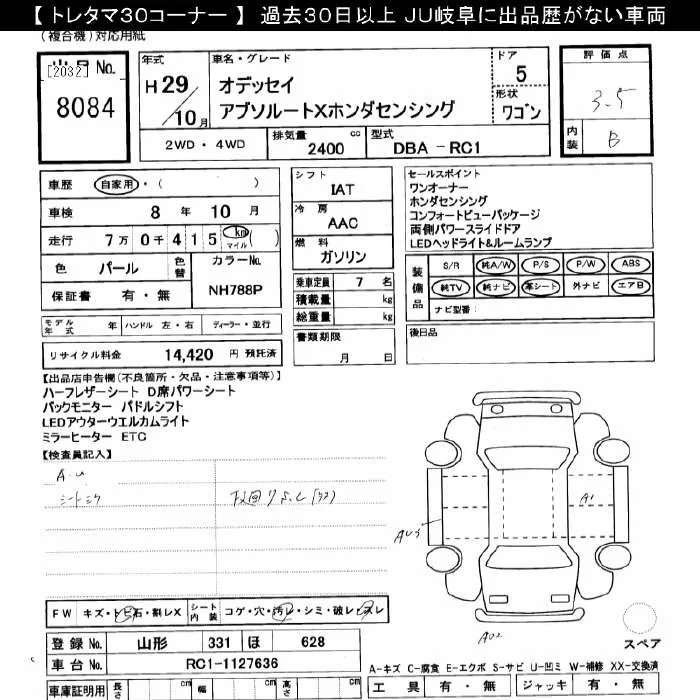 【 トレタマ30コーナー 】 過去30日以上 JU岐阜に出品歴がない車両
(複合機) 対応用紙
[2032] No.
8084
年式
H 29
10 月
車名・グレード
オデッセイ
アブソルートXホンダセンシング
ドア
5
形状
ワゴン
2WD ・ 4WD
排気量
2400 cc
型式
DBA - RC1
評価点
3.5
内装
B
車歴 自家用・( )
車検 8 年 10 月
走行 7万 0千 4 1 5 km マイル ( )
色 パール 色替
カラーNo.
NH788P
保証書 有・無
シフト
IAT
冷房
AAC
燃料
ガソリン
乗車定員 7 名
積載量 kg
総重量 kg
セールスポイント
ワンオーナー
ホンダセンシング
コンフォートビューパッケージ
両側パワースライドドア
LEDヘッドライト&ルームランプ
装備品
S/R 純A/W P/S P/W ABS
純TV 純ナビ 革シート 外ナビ エアB
ナビ型番:
モデル年式 年 ハンドル 左・右 ディーラー・並行
書類期限
月 日
後日品
リサイクル料金 14,420 円 預託済
【出品店申告欄(不良箇所・欠品・注意事項等)】
ハーフレザーシート D席パワーシート
バックモニター パドルシフト
LEDアウターウエルカムライト
ミラーヒーター ETC
【検査員記入】
A.U
シートシワ
A1
AU3
AU2
FW キズ・トビ石・割レX シート内装 コゲ・穴・汚レ・シミ・破レ・スレ
スペア
登録 No. 山形 331 ほ 628
車台 No. RC1-1127636
A-キズ C-腐食 E-エクボ S-サビ U-凹ミ W-補修 XX-交換済
車庫証明用 長さ cm 幅 cm 高さ cm
工具 有・無 ジャッキ 有・無